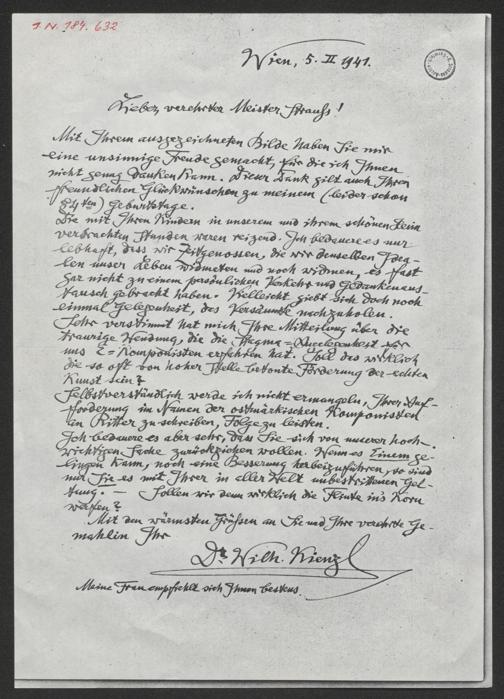 I.N. 184.632
Wien, 5. II 1941.
Lieber, verehrter Meister Strauß!
Mit Ihrem ausgezeichneten Bilde haben Sie mir
eine unsinnige Freude gemacht, für die ich Ihnen
nicht genug danken kann. Dieser Dank gilt auch Ihren
freundlichen Glückwünschen zu meinem (leider schon
84ten) Geburtstage.
Die mit Ihren Kindern in unserem und ihrem schönen Heim
verbrachten Stunden waren reizend. Ich bedauere es nur
lebhaft, dass wir Zeitgenossen, die wir denselben Idea-
len unser Leben widmeten und noch widmen, es fast
gar nicht zu einem persönlichen Verkehr und Gedankenaus-
tausch gebracht haben. Vielleicht giebt sich doch noch
einmal Gelegenheit, das Versäumte nachzuholen.
Sehr verstimmt hat mich Ihre Mitteilung über die
traurige Wendung, die die Stagma-Angelegenheit für
uns E-Komponisten erfahren hat. Soll das wirklich
die so oft von hoher Stelle betonte Förderung der echten
Kunst sein?
Selbstverständlich werde ich nicht ermangeln, Ihrer Auf-
forderung im Namen der ostmärkischen Komponisten
an Ritter zu schreiben, Folge zu leisten.
Ich bedauere es aber sehr, dass Sie sich von unserer hoch-
wichtigen Sache zurückziehen wollen. Wenn es Einem ge-
lingen kann, noch eine Besserung herbeizuführen, so sind
nur Sie es mit Ihrer in aller Welt unbestrittenen Gel-
tung. — Sollen wir denn wirklich die Flinte in's Korn
werfen?
Mit den wärmsten Grüßen an Sie und Ihre verehrte Ge-
mahlin Ihr
Dr. Wilh. Kienzl
Meine Frau empfiehlt sich Ihnen bestens.